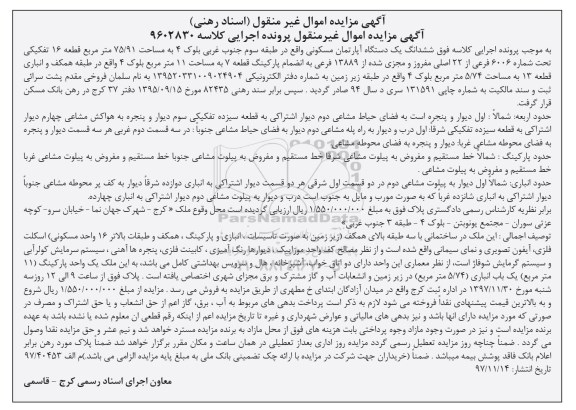 آگهی مزایده اموال غیر منقول (اسناد رهنی)
آگهی مزایده اموال غیرمنقول پرونده اجرایی کلاسه ۹۶۰۲۸۳۰
به موجب پرونده اجرایی کلاسه فوق ششدانگ یک دستگاه آپارتمان مسکونی واقع در طبقه سوم جنوب غربی بلوک ۴ به مساحت ۷۵/۹۱ متر مربع قطعه ۱۶ تفکیکی
تحت شماره ۶۰۰۶ فرعی از ۲۲ اصلی مفروز و مجزی شده از ۱۳۸۸۹ فرعی به انضمام پارکینگ قطعه ۷ به مساحت ۱۱ متر مربع بلوک ۴ واقع در طبقه همکف و انباری
قطعه ۱۳ به مساحت ۵/۷۴ متر مربع بلوک ۴ واقع در طبقه زیر زمین به شماره دفتر الکترونیکی ۱۳۹۵۲۰۳۳۱۰۰۹۰۲۴۹۰۴ به نام سلمان فروخی مقدم پشت سرائی
ثبت و سند مالکیت به شماره چاپی ۱۳۱۵۹۱ سری د سال ۹۴ صادر گردید . سپس برابر سند رهنی ۸۲۴۳۵ مورخ ۱۳۹۵/۰۹/۱۵ دفتر ۳۷ کرج در رهن بانک مسکن
قرار گرفت
حدود اربعه: شمالاً : اول دیوار و پنجره است به فضای حیاط مشاعی دوم دیوار اشتراکی به قطعه سیزده تفکیکی سوم دیوار و پنجره به هواکش مشاعی چهارم دیوار
اشتراکی به قطعه سیزده تفکیکی شرقا: اول درب و دیوار به راه پله مشاعی دوم دیوار به فضای حیاط مشاعی جنوبا : در سه قسمت دوم غربی هر سه قسمت دیوار و پنجره
به فضای محوطه مشاعی غربا: دیوار و پنجره به فضای محوطه مشاعی
حدود پارکینگ : شمالا خط مستقیم و مفروض به پیلوت مشاعی شرقا خط مستقیم و مفروض به پیلوت مشاعی جنوبا خط مستقیم و مفروض به پیلوت مشاعی غربا
خط مستقیم و مفروض به پیلوت مشاعی .
حدود انباری: شمالا اول دیوار به پیلوت مشاعی دوم در دو قسمت اول شرقی هر دو قسمت دیوار اشتراکی به انباری دوازده شرقاً دیوار به کف پر محوطه مشاعی جنوباً
دیوار اشتراکی به انباری شانزده غرباً که به صورت مورب و مایل به جنوب است درب و دیوار به پیلوت مشاعی دوم دیوار اشتراکی به انباری چهارده.
برابر نظریه کارشناس رسمی دادگستری پلاک فوق به مبلغ ۱/۵۵۰/۰۰۰/۰۰۰ ریال ارزیابی گردیده است محل وقوع ملک « کرج - شهرک جهان نما - خیابان سرو- کوچه
عزتی سوران - مجتمع یونونین - بلوک ۴ - طبقه ۳ جنوب غربی»
توصیف اجمالی : این ملک در ساختمانی با سه طبقه بالای همکف (زیر زمین به صورت تاسیسات، انباری و پارکینگ ، همکف و طبقات بالاتر ۱۶ واحد مسکونی) اسکلت
فلزی، آیفون تصویری و نمای سیمانی واقع شده است و از نظر مصالح کف واحد موزاییک، دیوارها رنگ آمیزی ، کابینت فلزی، پنجره ها آهنی ، سیستم سرمایش کولرآبی
و سیستم گرمایش شوفاژ است، از نظر معماری این واحد دارای دو اتاق خواب، آشپزخانه، هال و سرویس بهداشتی کامل می باشد، به این ملک یک واحد پارکینگ (۱۱
متر مربع) یک باب انباری (۵/۷۴ متر مربع) در زیر زمین و انشعابات آب و گاز مشترک و برق مجزای شهری اختصاص یافته است . پلاک فوق از ساعت ۹ الی ۱۲ روزسه
شنبه مورخ ۱۳۹۷/۱۱/۳۰ در اداره ثبت کرج واقع در میدان آزادگان ابتدای خ مطهری از طریق مزایده به فروش می رسد . مزایده از مبلغ ۱/۵۵۰/۰۰۰/۰۰۰ ریال شروع
و به بالاترین قیمت پیشنهادی نقدا فروخته می شود لازم به ذکر است پرداخت بدهی های مربوط به آب ، برق، گاز اعم از حق انشعاب و یا حق اشتراک و مصرف در
صورتی که مورد مزایده دارای آنها باشد و نیز بدهی های مالیاتی و عوارض شهرداری و غیره تا تاریخ مزایده اعم از اینکه رقم قطعی آن معلوم شده یا نشده باشد به عهده
برنده مزایده است و نیز در صورت وجود مازاد وجوه پرداختی بابت هزینه های فوق از محل مازاد به برنده مزایده مسترد خواهد شد و نیم عشر و حق مزایده نقدا وصول
می گردد . ضمناً چنانچه روز مزایده تعطیل رسمی گردد مزایده روز اداری بعداز تعطیلی در همان ساعت و مکان مقرر برگزار خواهد شد ضمناً پلاک مورد رهن برابر
اعلام بانک فاقد پوشش بیمه میباشد . ضمناً (خریداران جهت شرکت در مزایده با ارائه چک تضمینی بانک ملی به مبلغ پایه مزایده الزامی می باشد)م الف ۹۷/۴۰۴۵۳
تاریخ انتشار: ۹۷/۱۱/۱۴
معاون اجرای اسناد رسمی کرج - قاسمی